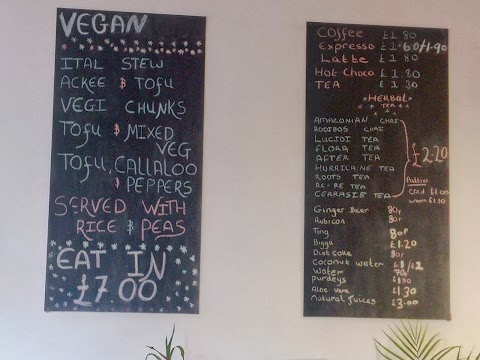 VEGAN
ITAL STEW
ACKEE & TOFU
VEGI CHUNKS
TOFU & MIXED
VEG
TOFU, CALLALOO
& PEPPERS
SERVED WITH
RICE & PEAS
EAT IN
£7.00
COFFEE £1.80
Expresso £1.60/1.90
Latte £1.80
Hot Choco £1.80
TEA £1.30
HERBAL
TEA
AMAZONIAN CHAI
ROOIBOS CHAI
LUCIDI TEA
FLORA TEA
AFTER TEA
HURRICANE TEA
ROOTS TEA
RE-RE TEA
CERRASIE TEA
£2.20
Patties
cold £1.00
warm £1.30
Ginger Beer 80p
Rubicon 80p
Ting 80p
Bigga £1.20
Diet Coke 80p
Coconut water £1/£2
Water 70p
purdeys
Aloe vera £1.30
Natural Juices £3.00